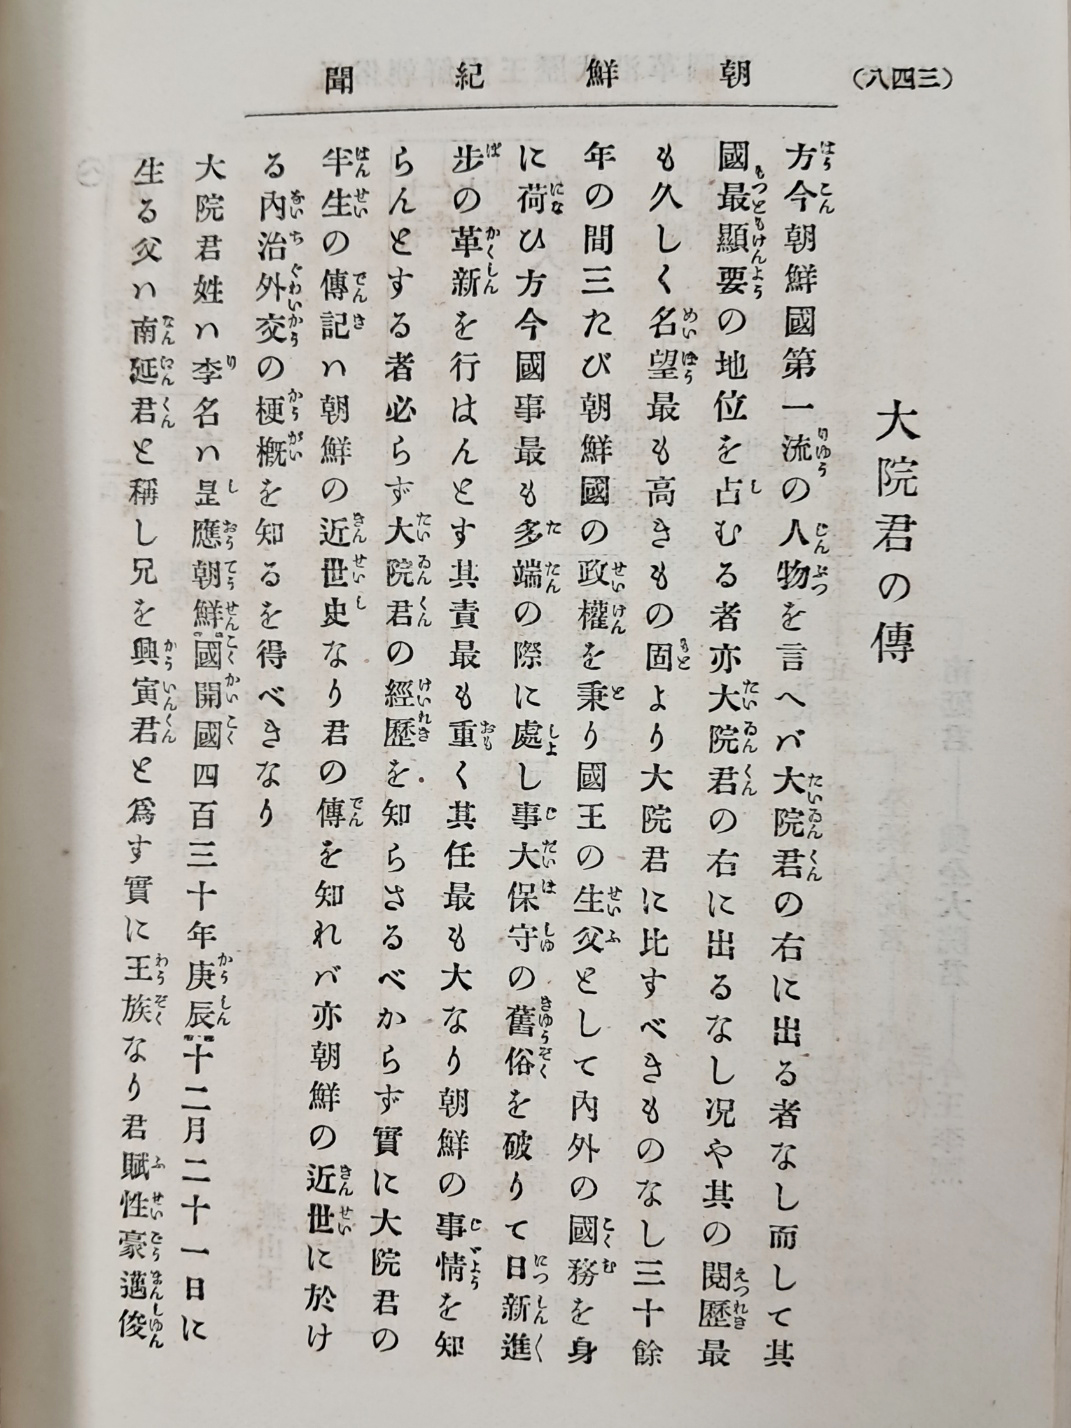 朝鮮紀聞
(三四八)
大院君の傳
方今朝鮮國第一流の人物を言へバ大院君の右に出る者なし而して其
國最顯要の地位を占むる者亦大院君の右に出るなし况や其の閱歷最
も久しく名望最も高きもの固より大院君に比すべきものなし三十餘
年の間三たび朝鮮國の政權を秉り國王の生父として内外の國務を身
に荷ひ方今國事最も多端の際に處し事大保守の舊俗を破りて日新進
步の革新を行はんとす其責最も重く其任最も大なり朝鮮の事情を知
らんとする者必らず大院君の經歷を知らさるべからず實に大院君の
半生の傳記ハ朝鮮の近世史なり君の傳を知れバ亦朝鮮の近世に於け
る内治外交の梗槪を知るを得べきなり
大院君姓ハ李名ハ昰應朝鮮國開國四百三十年庚辰十二月二十一日に
生る父ハ南延君と稱し兄を興寅君と爲す實に王族なり君賦性豪邁俊